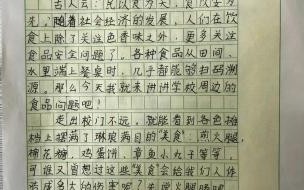 古人云：民以食为天，食以安为
先。随着社会经济的发展，人们在饮
食上除了关注色香味之外，更多关注
食品安全问题了。各种食品从田间、
水里端上餐桌时，几乎都能够扫码溯
源。那么今天我就来讲讲学校周边的
食品问题吧！
走出校门不，就能看到各色摊
档上摆满了琳琅满目的“美食”：煎火腿、
棉花糖、鸡蛋饼、章鱼小丸子等等，
可谁又曾想过这些“美食”会给我们人体
造成多大的伤害呢？先说火腿肠